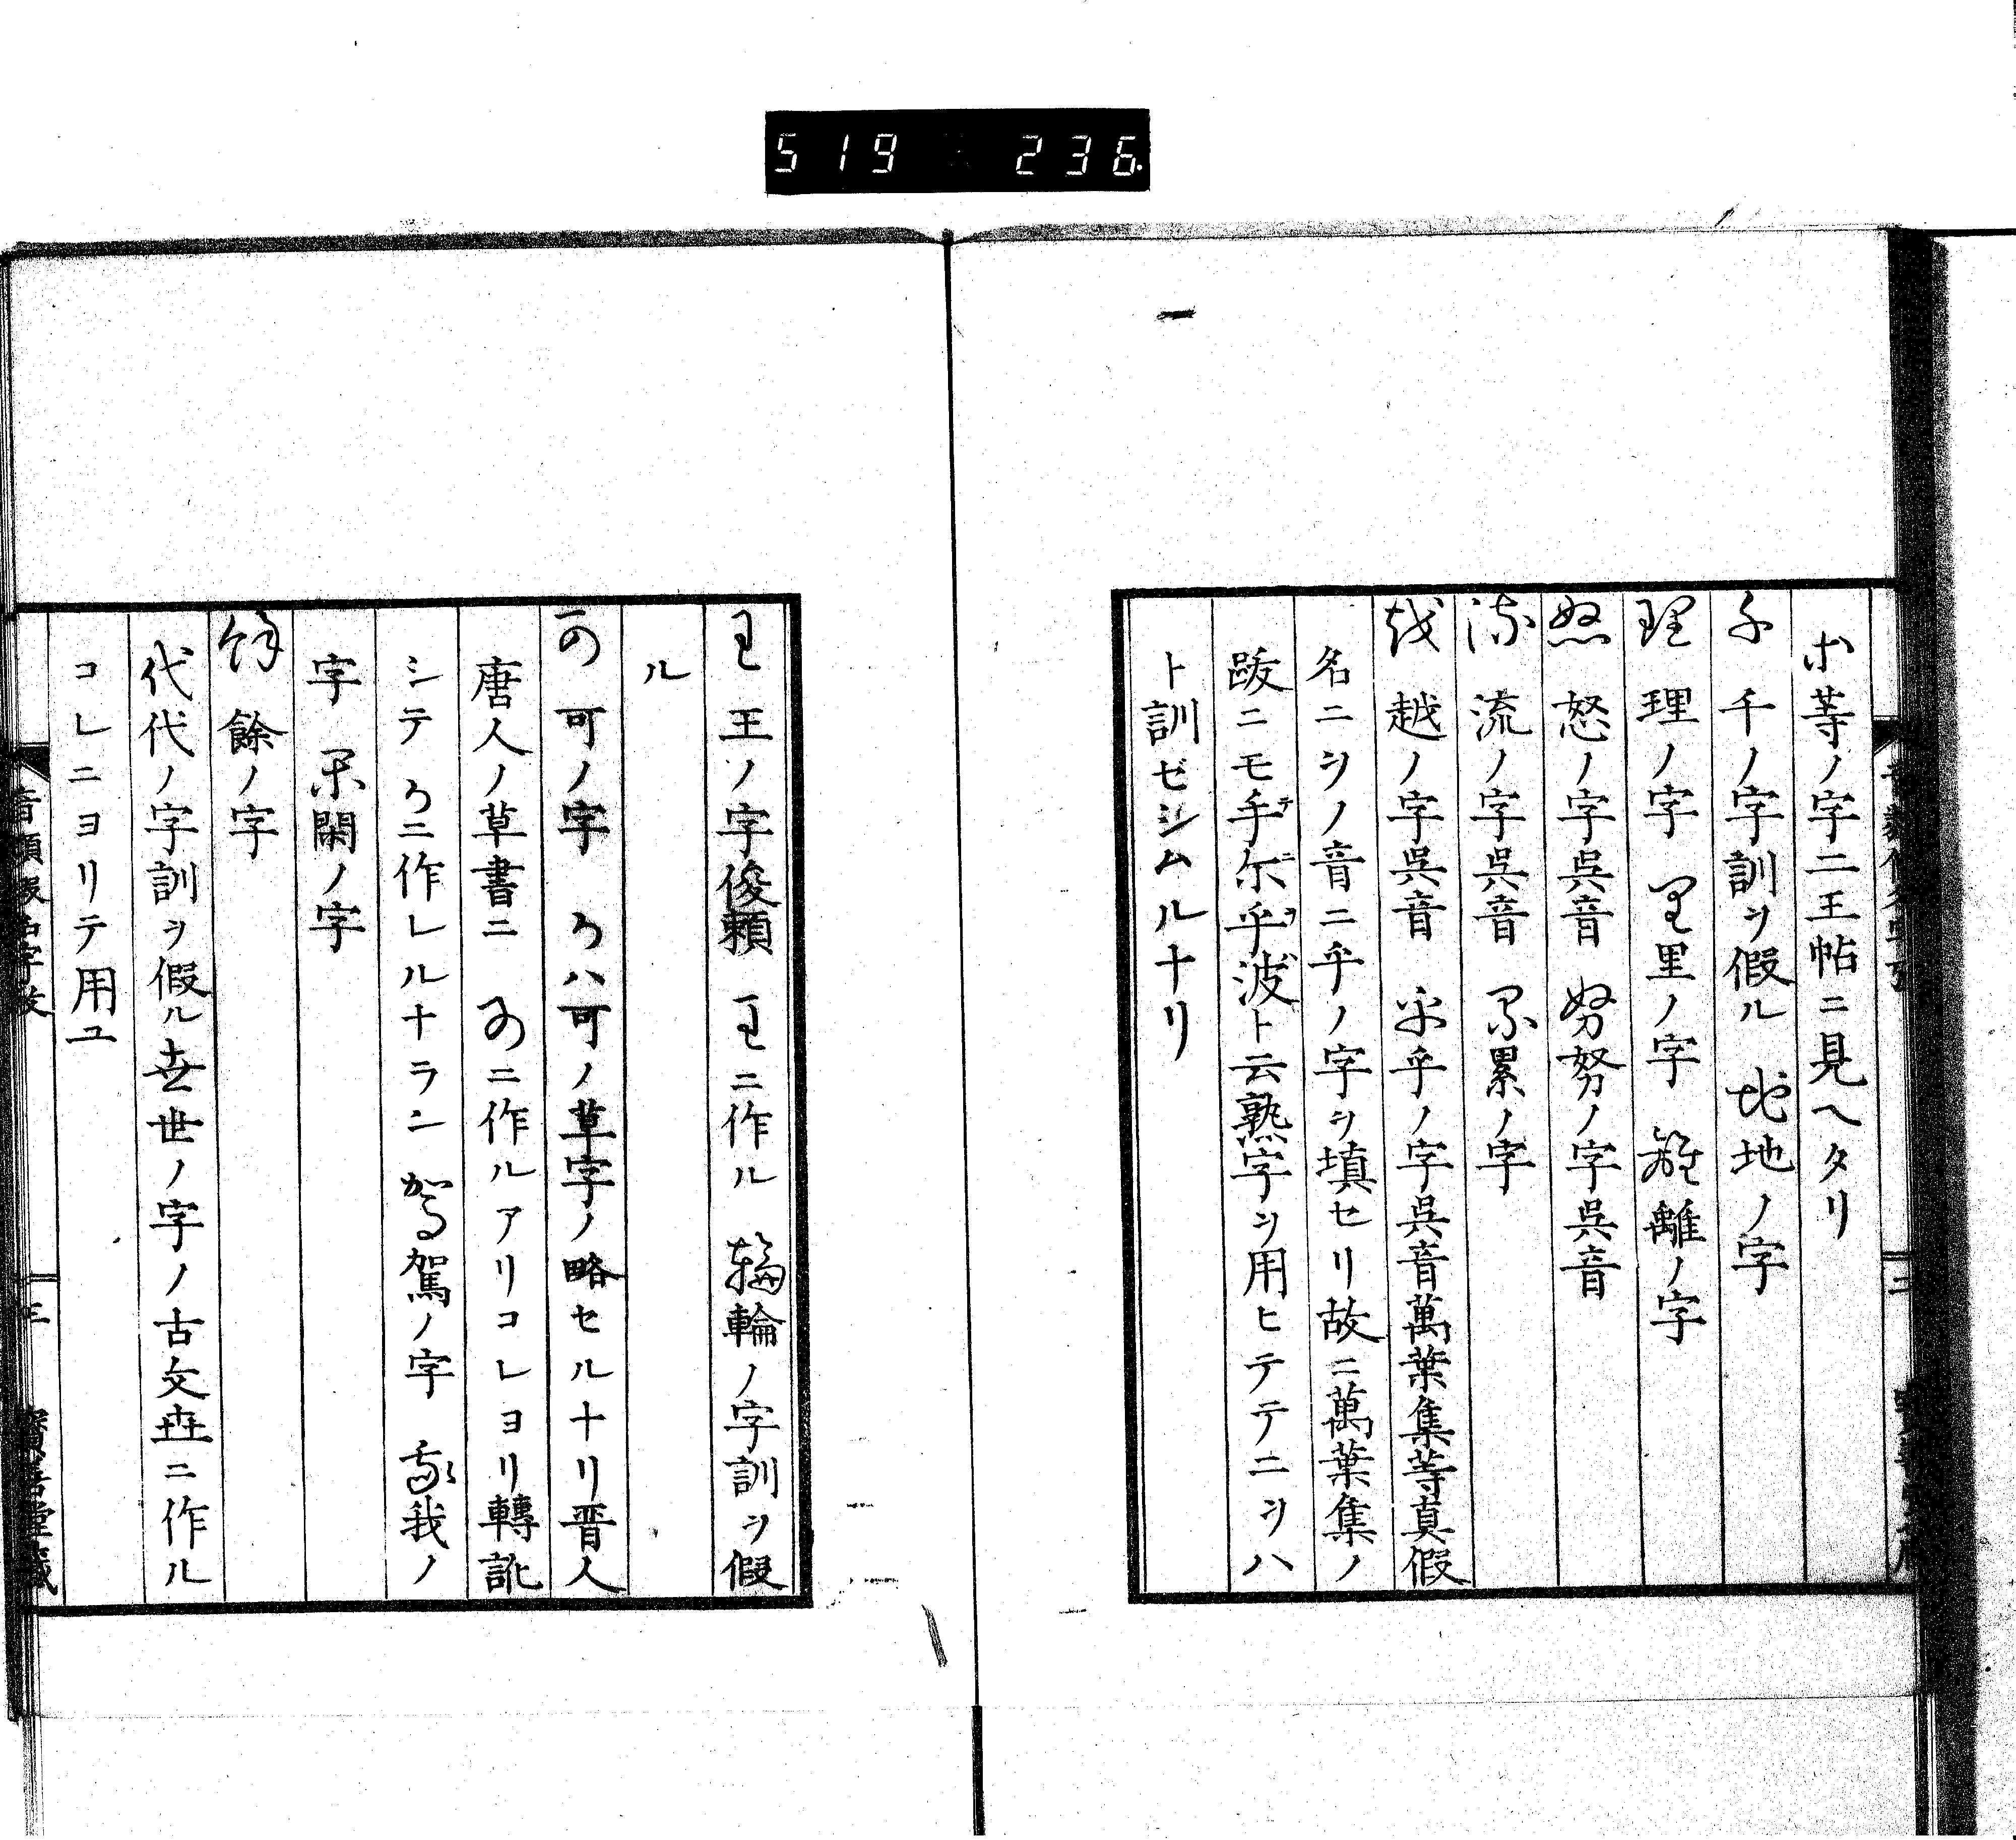 519 236
ホ等ノ字二王帖ニ見ヘタリ
千ノ字訓ヲ假ル 地ノ字
理ノ字 里ノ字 離ノ字
怒ノ字呉音 努ノ字呉音
流ノ字呉音 累ノ字
越ノ字呉音 乎ノ字呉音萬葉集等真假
名ニヲノ音ニ乎ノ字ヲ填セリ故ニ萬葉集ノ
跋ニモ手尓乎波ト云熟字ヲ用ヒテテニヲハ
ト訓ゼシムルナリ
王ノ字俊頼 ニ作ル 輪ノ字訓ヲ假
ル
可ノ字 ハ可ノ草字ノ略セルナリ晋人
唐人ノ草書ニ ニ作ルアリコレヨリ轉訛
シテ ニ作レルナラン 駕ノ字 我ノ
字 閑ノ字
餘ノ字
代代ノ字訓ヲ假ル 世ノ字ノ古文 ニ作ル
コレニヨリテ用ユ
音類假名字攷
三